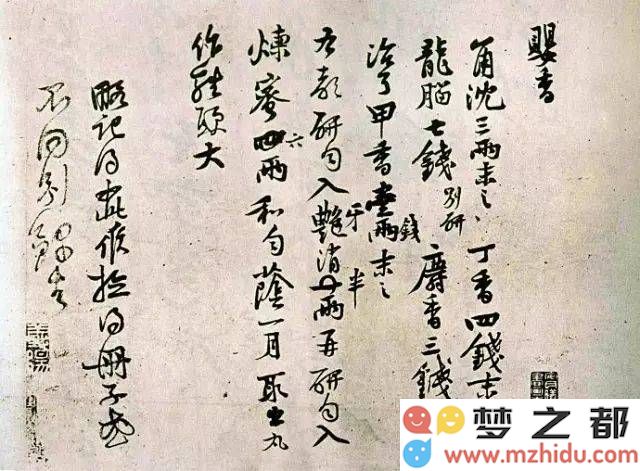 嬰香
角沈三兩末之 丁香四錢末
龍腦七錢 別研 麝香三錢
治了甲香壹兩錢末之
右都研勻入艷消半兩再研勻入
牙 半
煉蜜四兩和勻蔭一月取出丸
六
作雞頭大
略記得此候檢得冊子或
不同別
梦之都
www.mzhidu.com